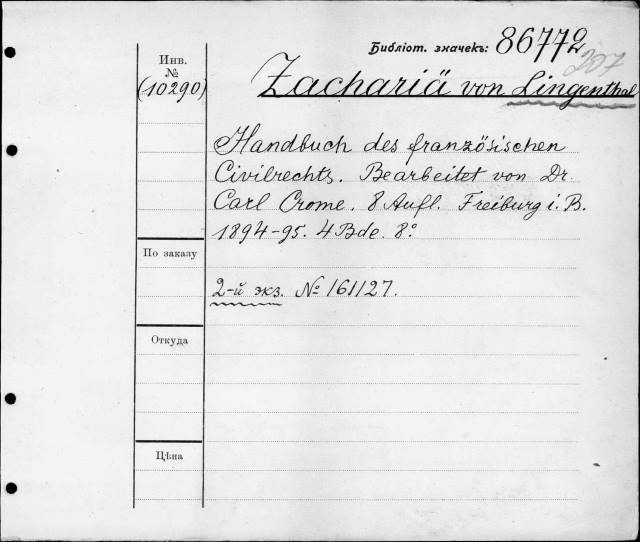 Библіот. значекъ: 86772
207
Инв.
№
(10290)
Zachariä von Lingenthal
Handbuch des französischen
Civilrechts. Bearbeitet von Dr.
Carl Crome. 8 Aufl. Freiburg i. B.
1894-95. 4 Bde. 8°
По заказу
2-й экз. № 161127.
Откуда
Цѣна